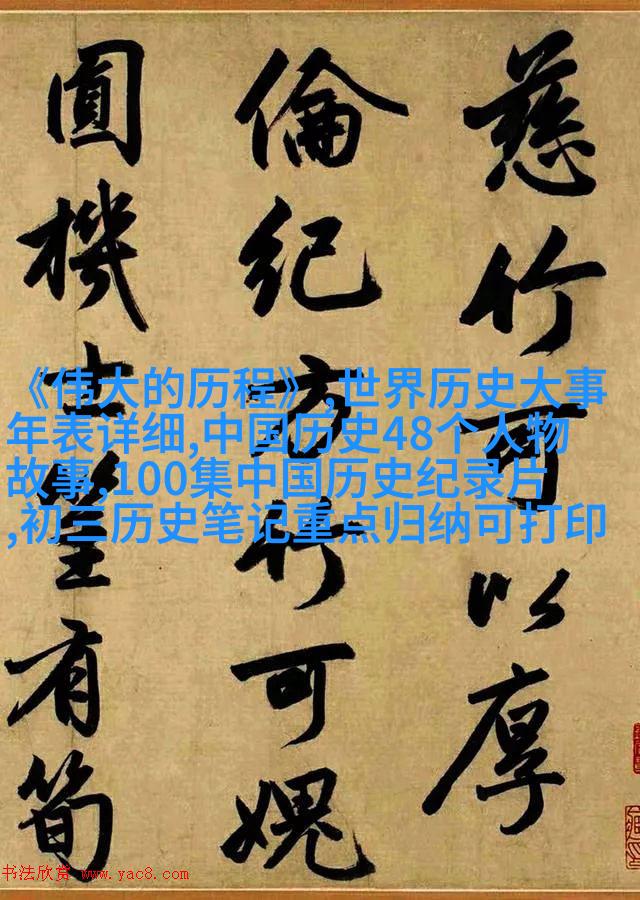 慈竹可以厚
倫紀方竹可媿
圓機士筀有筍
《伟大的历程》,世界历史大事
年表详细,中国历史48个人物
故事,100集中国历史纪录片
,初三历史笔记重点归纳可打印
书法欣赏 www.yac8.com